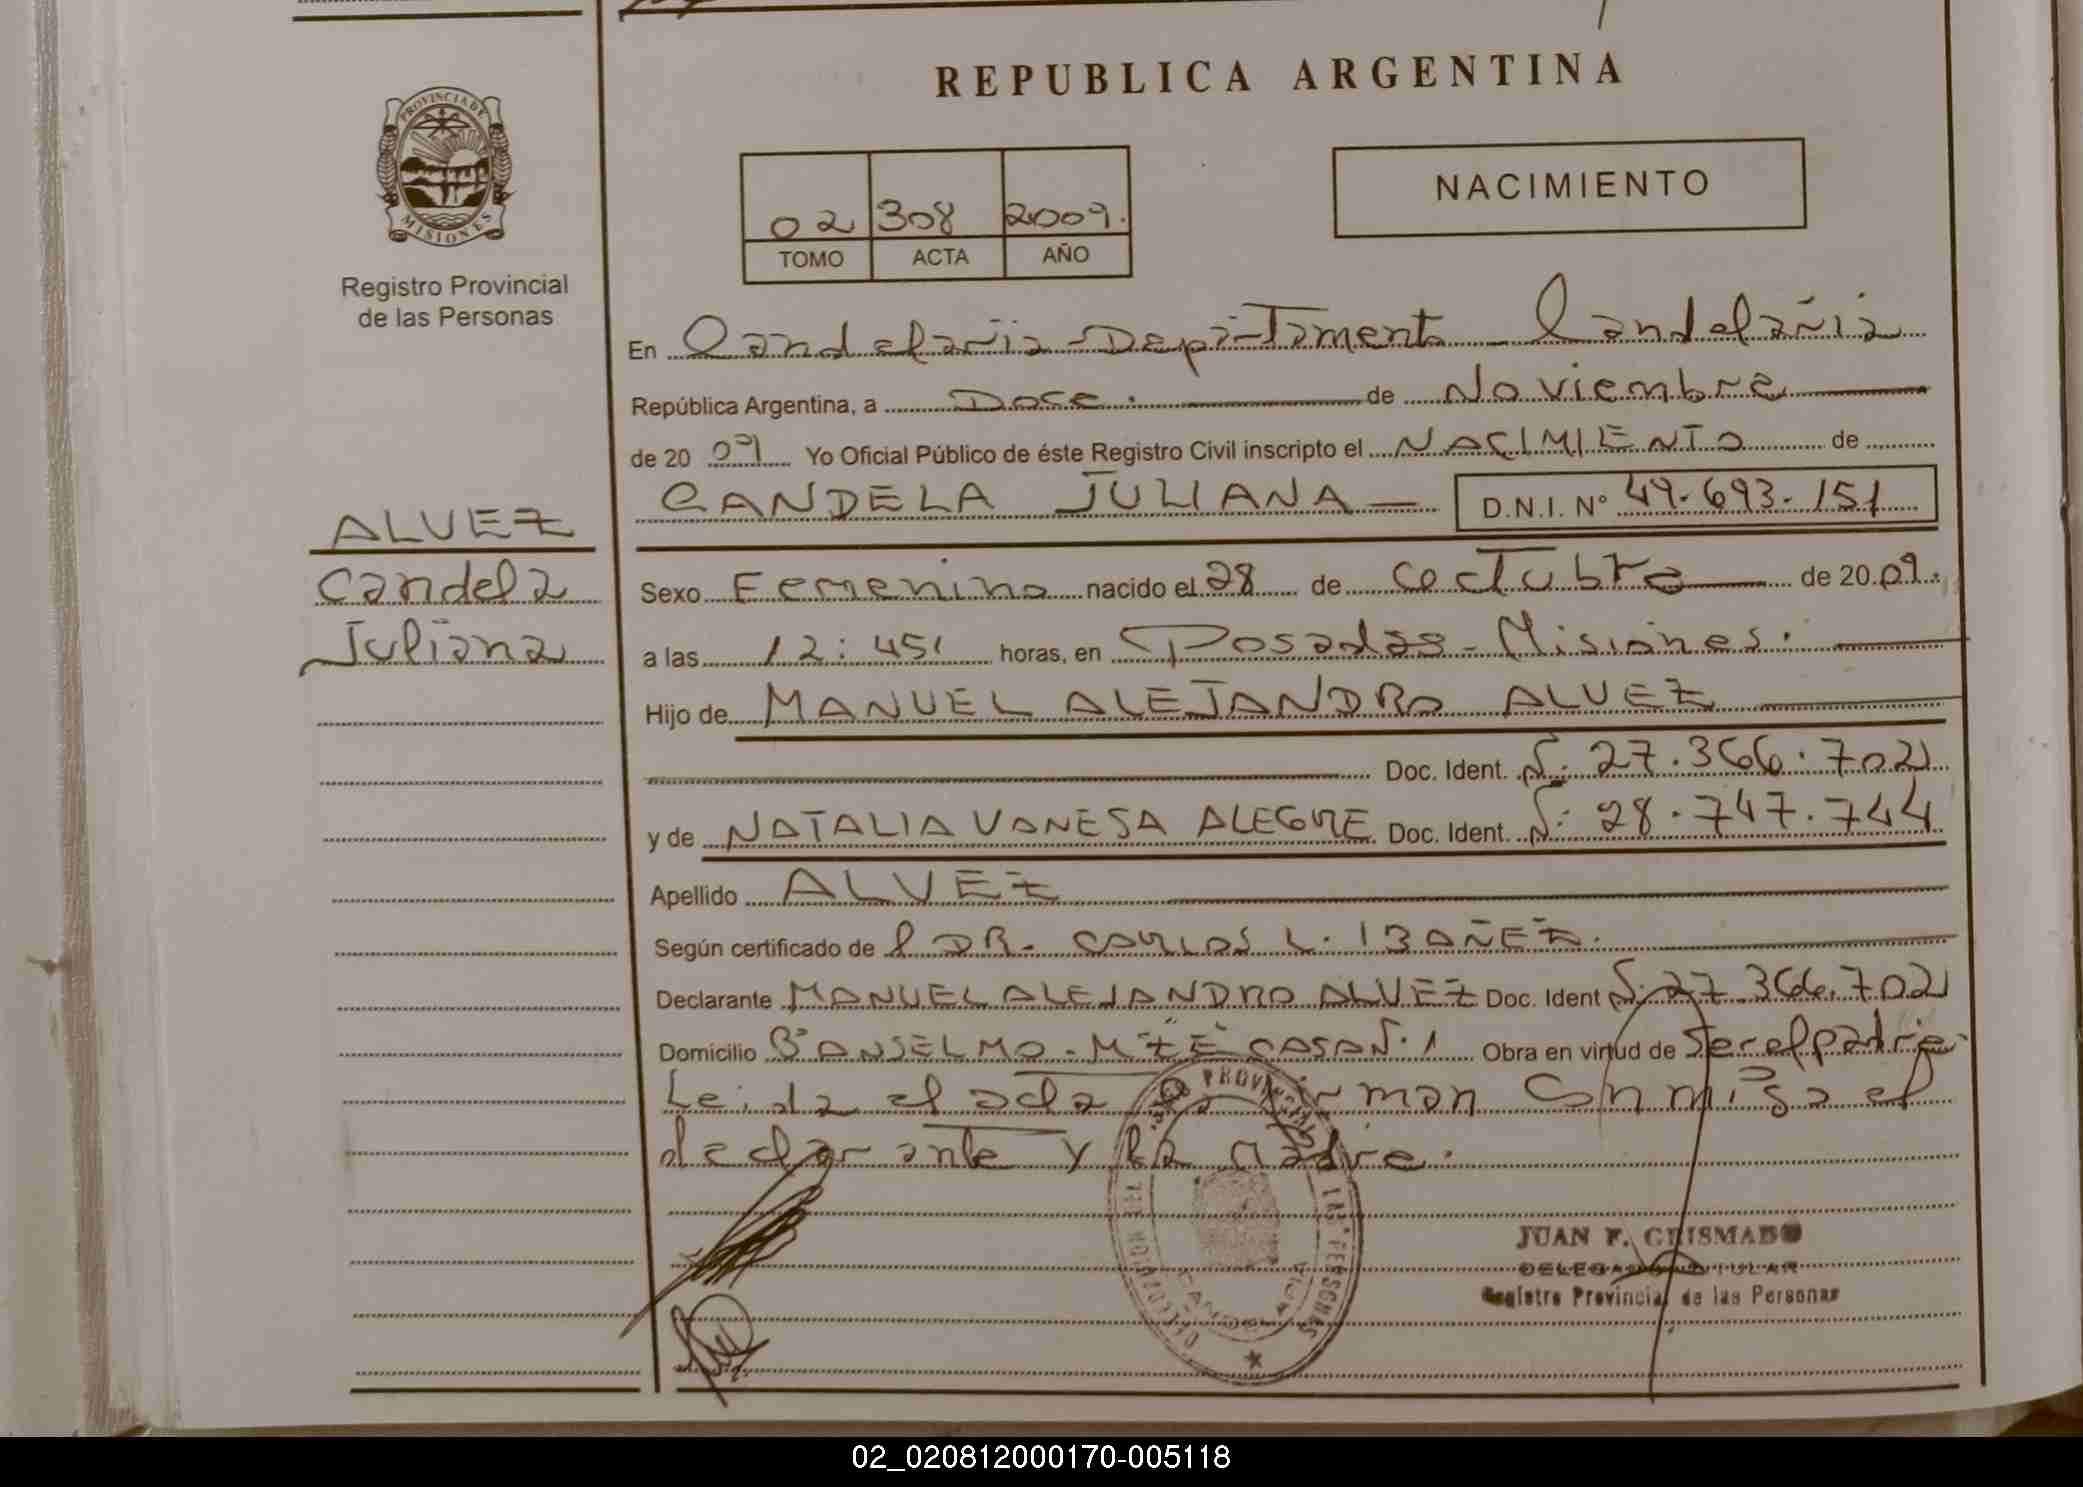 REPUBLICA ARGENTINA
PROVINCIA DE
MISIONES
Registro Provincial
de las Personas
02 308 2009.
TOMO ACTA AÑO
NACIMIENTO
En Candelaria - Departamento Candelaria
República Argentina, a Doce. de Noviembre
de 20 09 Yo Oficial Público de éste Registro Civil inscripto el NACIMIENTO de
CANDELA JULIANA — D.N.I. Nº 49.693.151
ALVEZ
Candela
Juliana
Sexo Femenino nacido el 28 de octubre de 20 09.
a las 12:45 horas, en Posadas - Misiones.
Hijo de MANUEL ALEJANDRO ALVEZ
Doc. Ident. N: 27.366.702
y de NATALIA VANESA ALEGRE Doc. Ident. N: 28.747.744
Apellido ALVEZ
Según certificado de l DR. CARLOS L. IBAÑEZ.
Declarante MANUEL ALEJANDRO ALVEZ Doc. Ident N: 27.366.702
Domicilio Bº ANSELMO - CASA Nº 1 Obra en virtud de Ser el padre.
Leida el acta la firman conmigo el
declarante y la madre.
JUAN F. GRISMADO
DELEGADO TITULAR
Registro Provincial de las Personas
DIRECCION DEL REGISTRO PROVINCIAL DE LAS PERSONAS
CANDELARIA
02_020812000170-005118